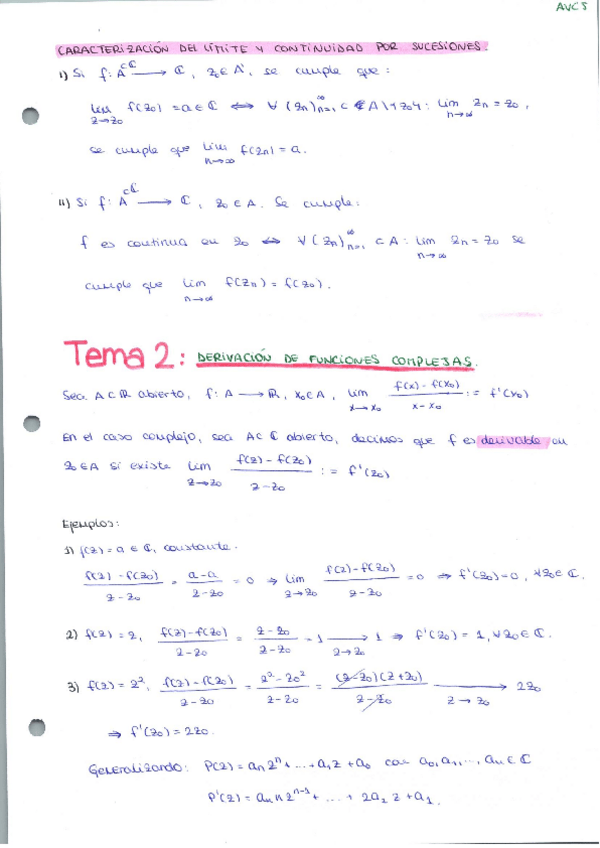 AVC5
CARACTERIZACIÓN DEL LÍMITE Y CONTINUIDAD POR SUCESIONES.
i) Si f: A ⊂ℂ ⟶ ℂ, z₀∈A', se cumple que:
lim_{z→z₀} f(z₀) = a ∈ ℂ ⟺ ∀ (zₙ)ₙ₌₁^∞ ⊂ A\{z₀}: lim_{n→∞} zₙ = z₀,
se cumple que lim_{n→∞} f(zₙ) = a.
ii) Si f: A ⊂ℂ ⟶ ℂ, z₀∈A. Se cumple:
f es continua en z₀ ⟺ ∀ (zₙ)ₙ₌₁^∞ ⊂ A: lim_{n→∞} zₙ = z₀ se
cumple que lim_{n→∞} f(zₙ) = f(z₀).
Tema 2: DERIVACIÓN DE FUNCIONES COMPLEJAS.
Sea A⊂ℝ abierto, f: A ⟶ ℝ, x₀∈A, lim_{x→x₀} (f(x) - f(x₀))/(x - x₀) := f'(x₀)
En el caso complejo, sea A⊂ℂ abierto, decimos que f es derivable en
z₀∈A si existe lim_{z→z₀} (f(z) - f(z₀))/(z - z₀) := f'(z₀)
Ejemplos:
1) f(z) = a ∈ ℂ, constante.
(f(z) - f(z₀))/(z - z₀) = (a - a)/(z - z₀) = 0 ⇒ lim_{z→z₀} (f(z) - f(z₀))/(z - z₀) = 0 ⇒ f'(z₀) = 0, ∀z₀∈ℂ.
2) f(z) = z, (f(z) - f(z₀))/(z - z₀) = (z - z₀)/(z - z₀) = 1 ⟶_{z→z₀} 1 ⇒ f'(z₀) = 1, ∀z₀∈ℂ.
3) f(z) = z², (f(z) - f(z₀))/(z - z₀) = (z² - z₀²)/(z - z₀) = (z - z₀)(z + z₀)/(z - z₀) ⟶_{z→z₀} 2z₀
⇒ f'(z₀) = 2z₀.
Generalizando: P(z) = aₙzⁿ + ... + a₁z + a₀ con a₀, a₁, ..., aₙ ∈ ℂ
P'(z) = aₙ n zⁿ⁻¹ + ... + 2a₂ z + a₁.